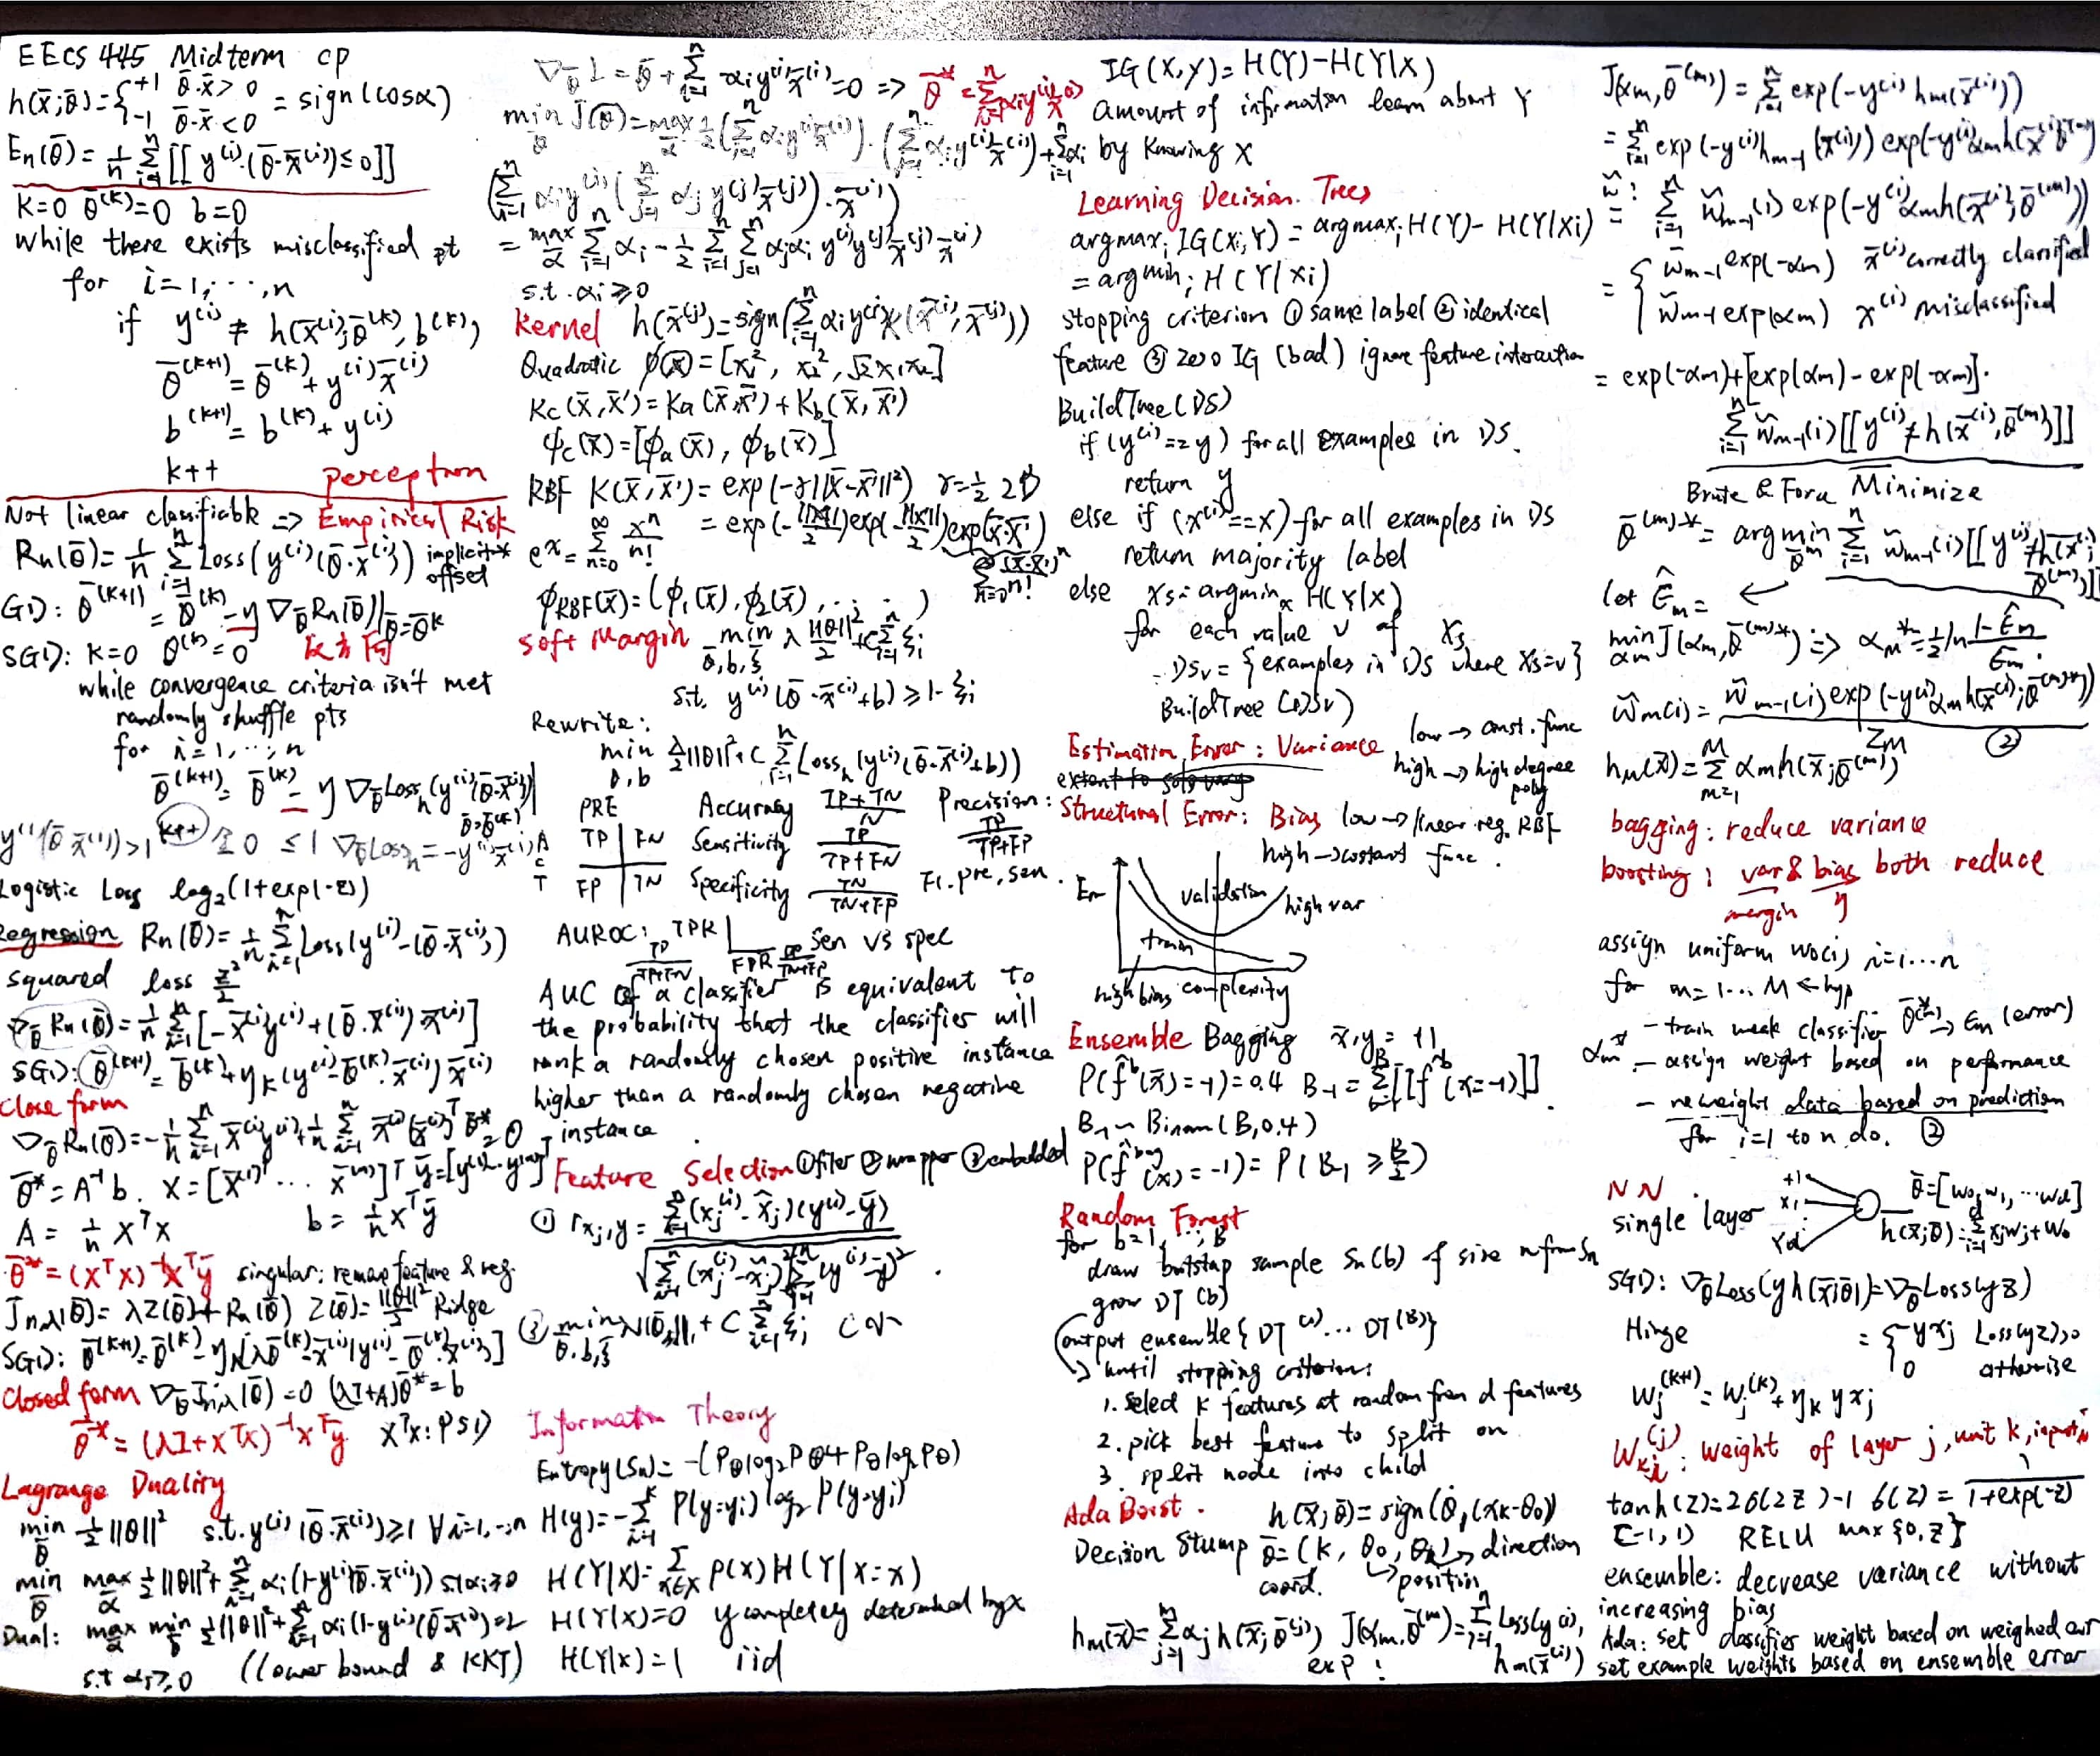 EECS 445 Midterm cp
h(x̄;θ̄)={+1 θ̄·x̄>0
-1 θ̄·x̄<0 = sign(cosα)
En(θ̄)= 1/n Σ_{i=1}^n [[y^(i)·(θ̄·x̄^(i))≤0]]
K=0 θ̄^(k)=0 b=0
while there exists misclassified pt
for i=1,...,n
if y^(i) ≠ h(x̄^(i);θ̄^(k),b^(k))
θ̄^(k+1) = θ̄^(k) + y^(i)x̄^(i)
b^(k+1) = b^(k) + y^(i)
k++ perceptron
Not linear classifiable => Empirical Risk
Rn(θ̄)= 1/n Σ_{i=1}^n Loss(y^(i)(θ̄·x̄^(i))) implicit offset
GD: θ̄^(k+1) = θ̄^(k) - η ∇_θ̄ Rn(θ̄)|θ̄=θ̄^k
SGD: K=0 θ̄^(k)=0
while convergence criteria isn't met
randomly shuffle pts
for i=1,...,n
θ̄^(k+1) = θ̄^(k) - η ∇_θ̄ Loss_h(y^(i)θ̄·x̄^(i))|θ̄=θ̄^(k)
k++
Logistic Loss log₂(1+exp(-z))
Regression Rn(θ̄)= 1/n Σ_{i=1}^n Loss(y^(i)-(θ̄·x̄^(i)))
squared loss z²/2
∇_θ̄ Rn(θ̄)= 1/n Σ_{i=1}^n [-x̄^(i)y^(i)+(θ̄·x̄^(i))x̄^(i)]
SGD: θ̄^(k+1) = θ̄^(k)+η_k(y^(i)-θ̄^(k)·x̄^(i))x̄^(i)
Close form
∇_θ̄ Rn(θ̄)=-1/n Σ_{i=1}^n x̄^(i)y^(i)+1/n Σ_{i=1}^n x̄^(i)(x̄^(i))^T θ̄*=0
θ̄*=A⁻¹b. X=[x̄^(1)... x̄^(n)]^T ȳ=[y^(1)...y^(n)]^T
A= 1/n X^T X b= 1/n X^T ȳ
θ̄*=(X^T X)⁻¹X^T ȳ singular: remove feature & reg.
J_{n,λ}(θ̄)= λZ(θ̄)+Rn(θ̄) Z(θ̄)=||θ̄||²/2 Ridge
SGD: θ̄^(k+1)=θ̄^(k)-η_k[λθ̄^(k)-x̄^(i)(y^(i)-θ̄^(k)·x̄^(i))]
Closed form ∇_θ̄ J_{n,λ}(θ̄)=0 (λI+A)θ̄*=b
θ̄*=(λI+X^T X)⁻¹X^T ȳ X^T X: PSD
Lagrange Duality
min_θ̄ 1/2||θ||² s.t. y^(i)(θ̄·x̄^(i))≥1 ∀i=1,...,n
min_θ̄ max_α 1/2||θ||²+Σ_{i=1}^n αi(1-y^(i)(θ̄·x̄^(i))) s.t αi≥0
Dual: max_α min_θ̄ 1/2||θ||²+Σ_{i=1}^n αi(1-y^(i)(θ̄·x̄^(i)))=L
s.t αi≥0 (lower bound & KKT)
∇_θ̄ L = θ̄+Σ_{i=1}^n αi y^(i)x̄^(i)=0 => θ̄*=Σ_{i=1}^n αi y^(i) x̄^(i)
min_θ̄ J(θ̄)=max_α 1/2(Σ_{i=1}^n αi y^(i)x̄^(i))·(Σ_{i=1}^n αi y^(i)x̄^(i))+Σ_{i=1}^n αi
(Σ_{i=1}^n αi y^(i)(Σ_{j=1}^n αj y^(j)x̄^(j))·x̄^(i))
= max_α Σ_{i=1}^n αi - 1/2 Σ_{i=1}^n Σ_{j=1}^n αjαi y^(i)y^(j)x̄^(j)x̄^(i)
s.t. αi≥0
Kernel h(x̄^(j))=sign(Σ_{i=1}^n αi y^(i)K(x̄^(i),x̄^(j)))
Quadratic φ(x̄)=[x₁², x₂², √2x₁x₂]
Kc(x̄,x̄')=Ka(x̄,x̄')+Kb(x̄,x̄')
φc(x̄)=[φa(x̄), φb(x̄)]
RBF K(x̄,x̄')=exp(-γ||x̄-x̄'||²) γ=1/2
= exp(-||x̄||/2)exp(-||x̄'||/2)exp(x̄·x̄')
e^x = Σ_{n=0}^∞ x^n/n!
Σ_{n=0}^∞ (x̄·x̄')^n/n!
φ_RBF(x̄)=(φ₁(x̄),φ₂(x̄),... )
Soft Margin min_{θ̄,b,ξ} λ ||θ||²/2 + CΣ_{i=1}^n ξi
s.t. y^(i)(θ̄·x̄^(i)+b)≥1-ξi
Rewrite:
min_{θ,b} λ/2||θ||²+C Σ_{i=1}^n Loss_h(y^(i)(θ̄·x̄^(i)+b))
PRE Accuracy TP+TN/N Precision: TP/TP+FP
TP FN Sensitivity TP/TP+FN
FP TN Specificity TN/TN+FP F1. pre, sen.
A
C
T
AUROC: TPR TP/TP+FN FPR FP/TN+FP sen vs spec
AUC of a classifier is equivalent to
the probability that the classifier will
rank a randomly chosen positive instance
higher than a randomly chosen negative
instance
Feature Selection ①filter ②wrapper ③embedded
① r_{xj,y} = Σ_{i=1}^n (xj^(i)-x̄j)(y^(i)-ȳ) / √(Σ_{i=1}^n (xj^(i)-x̄j)² Σ_{i=1}^n (y^(i)-ȳ)²)
③ min_{θ̄,b,ξ} λ||θ̄||₁ + C Σ_{i=1}^n ξi
Information Theory
Entropy(Sn)= -(P⊕log₂P⊕+P⊖log₂P⊖)
H(y)=-Σ_{i=1}^k P(y=yi) log₂ P(y=yi)
H(Y|X)=Σ_{x∈X} P(x)H(Y|X=x)
H(Y|X)=0 y completely determined by x
H(Y|X)=1 iid
IG(X,Y)=H(Y)-H(Y|X)
amount of information learn about Y
by knowing X
Learning Decision Trees
argmax_i IG(Xi,Y)=argmax_i H(Y)-H(Y|Xi)
= argmin_i H(Y|Xi)
stopping criterion ① same label ② identical
feature ③ zero IG (bad) ignore feature interaction
BuildTree(DS)
if (y^(i)==y) for all examples in DS.
return y
else if (x^(i)==x) for all examples in DS
return majority label
else Xs=argmin_x H(Y|X)
for each value v of Xs
DSv={examples in DS where Xs=v}
BuildTree(DSv)
Estimation Error: Variance low→const. func
high→high degree poly
Structural Error: Bias low→linear reg. RBF
high→constant func.
En validation high var
train
high bias complexity
Ensemble Bagging x̄,y=+1
P(f̂^b(x̄)=-1)=0.4 B₋₁=Σ_{b=1}^B[[f̂^b(x=-1)]]
B₋₁~Binom(B,0.4)
P(f̂^bag(x)=-1)=P(B₋₁≥B/2)
Random Forest
for b=1,...,B
draw bootstap sample Sn(b) of size n from Sn
grow DT(b)
output ensemble{DT^(1)...DT^(B)}
until stopping criterion:
1. select K features at random from d features
2. pick best feature to split on
3. split node into child
Ada Boost. h(x̄;θ̄)=sign(θ₁(xk-θ₀))
Decision Stump θ̄=(k, θ₀, θ₁)→direction
coord. →position
hm(x̄)=Σ_{j=1}^m αj h(x̄;θ̄^(j)) J(αm,θ̄^(m))=Σ_{i=1}^n Loss(y^(i),
exp! hm(x̄^(i)))
J(αm,θ̄^(m))=Σ_{i=1}^n exp(-y^(i)hm(x̄^(i)))
=Σ_{i=1}^n exp(-y^(i)h_{m-1}(x̄^(i))) exp(-y^(i)αm h(x̄^(i);θ̄^(m)))
w̃: = Σ_{i=1}^n w̃_{m-1}(i) exp(-y^(i)αm h(x̄^(i);θ̄^(m)))
= { w̃_{m-1}exp(-αm) x̄^(i) correctly classified
w̃_{m-1}exp(αm) x^(i) misclassified
= exp(-αm)+[exp(αm)-exp(-αm)]·
Σ_{i=1}^n w̃_{m-1}(i)[[y^(i)≠h(x̄^(i),θ̄^(m))]]
Brute & Force Minimize
θ̄^(m)*= argmin_θ̄^m Σ_{i=1}^n w̃_{m-1}(i)[[y^(i)≠h(x̄^(i);θ̄^(m))]]
let Êm= ←
min_αm J(αm,θ̄^(m)*) => αm*=1/2 ln (1-Êm)/Êm
w̃m(i)= w̃_{m-1}(i)exp(-y^(i)αm h(x̄^(i);θ̄^(m)*))/Zm ②
hM(x̄)=Σ_{m=1}^M αm h(x̄;θ̄^(m))
bagging: reduce variance
boosting: var & bias both reduce
margin
assign uniform w₀(i) i=1...n
for m=1...M ←hyp
- train weak classifier θ̄^(m)*→Êm (error)
αm* - assign weight based on performance
- reweight data based on prediction
for i=1 to n do. ②
NN
single layer +1 x₁ xd θ̄=[w₀,w₁,...wd]
h(x̄;θ̄)=Σ_{i=1}^d xjwj+w₀
SGD: ∇_θ̄ Loss(yh(x̄;θ̄))=∇_θ̄ Loss(yz)
Hinge = {-yxj Loss(yz)>0
0 otherwise
wj^(k+1)=wj^(k)+ηk yxj
W_{ki}^(j): weight of layer j, unit k, input i
tanh(z)=2σ(2z)-1 σ(z)=1/1+exp(-z)
[-1,1) RELU max{0,z}
ensemble: decrease variance without
increasing bias
Ada: set classifier weight based on weighed err
set example weights based on ensemble error